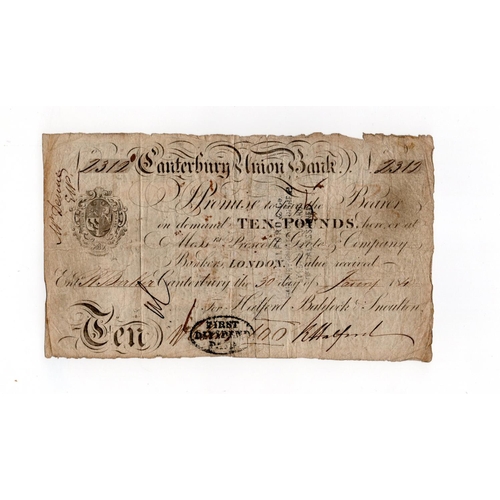 2312 Canterbury Union Bank 2312
I Promise to pay the Bearer
on demand TEN POUNDS, here, or at
Mess.rs Prescott, Grote & Company
Bankers, LONDON. Value received
Ent.d Canterbury the 30 day of
For Halford Baldock & Snoulten,
Ten
FIRST
DIVIDEND
PAID